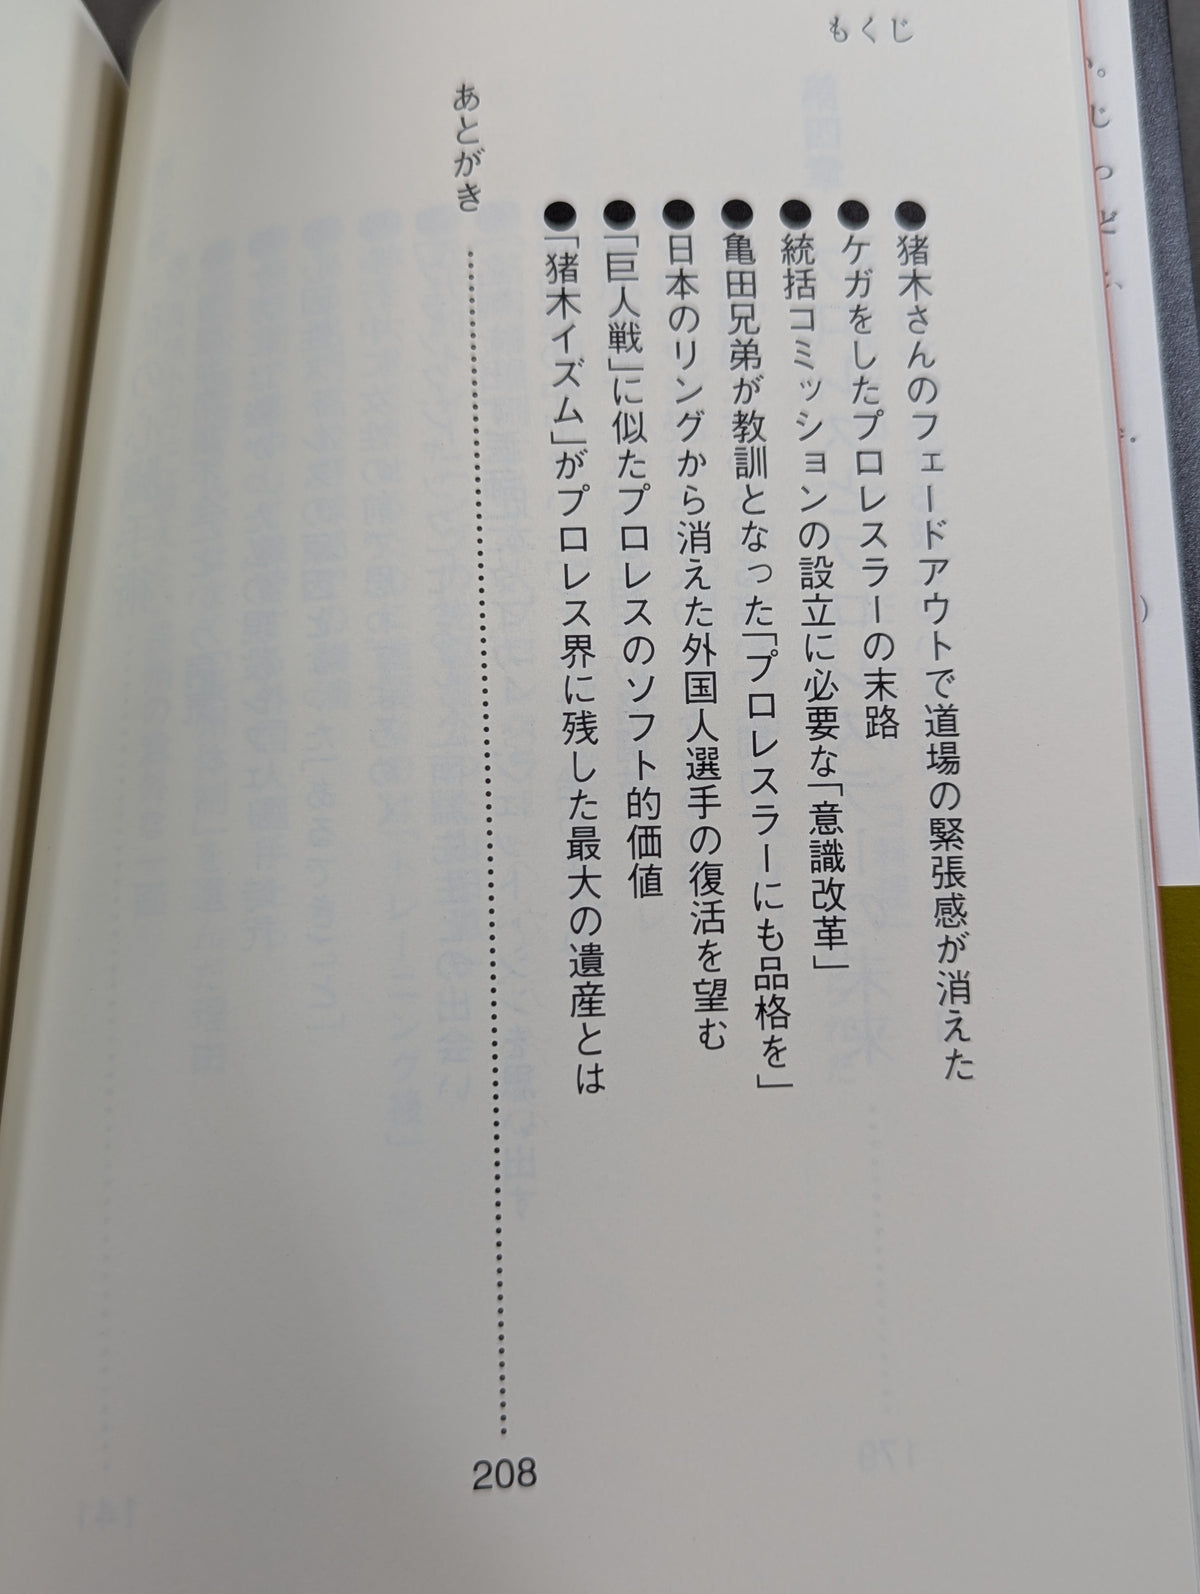 もくじ
●猪木さんのフェードアウトで道場の緊張感が消えた
●ケガをしたプロレスラーの末路
●統括コミッションの設立に必要な「意識改革」
●亀田兄弟が教訓となった「プロレスラーにも品格を」
●日本のリングから消えた外国人選手の復活を望む
●「巨人戦」に似たプロレスのソフト的価値
●「猪木イズム」がプロレス界に残した最大の遺産とは
あとがき……208